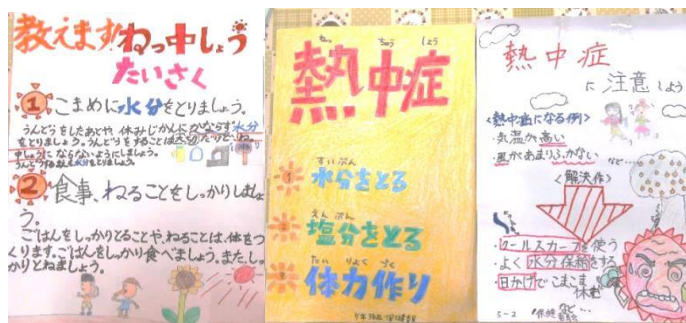 教えます!ねっ中しょう
たいさく
1 こまめに水分をとりましょう。
うんどうをしたあとや、休みじかんにかならず水分
をとりましょう。
2 食事、ねることをしっかりしましょ
う。
ごはんをしっかりとることや、ねることは、体をつ
くります。ごはんをしっかり食べましょう。また、しっ
かりとねましょう。
ねっ ちゅう しょう
熱中症
すいぶん
1 水分をとる
えんぶん
2 塩分をとる
たいりょくづく
3 体力作り
熱中症
に注意しよう
<熱中症になる例>
・気温が高い
・風があまりふかない
など…
<解決作>
・クールスカーフを使う
・よく水分保給をする
・日かげでこまごま
休む
など…
5-2